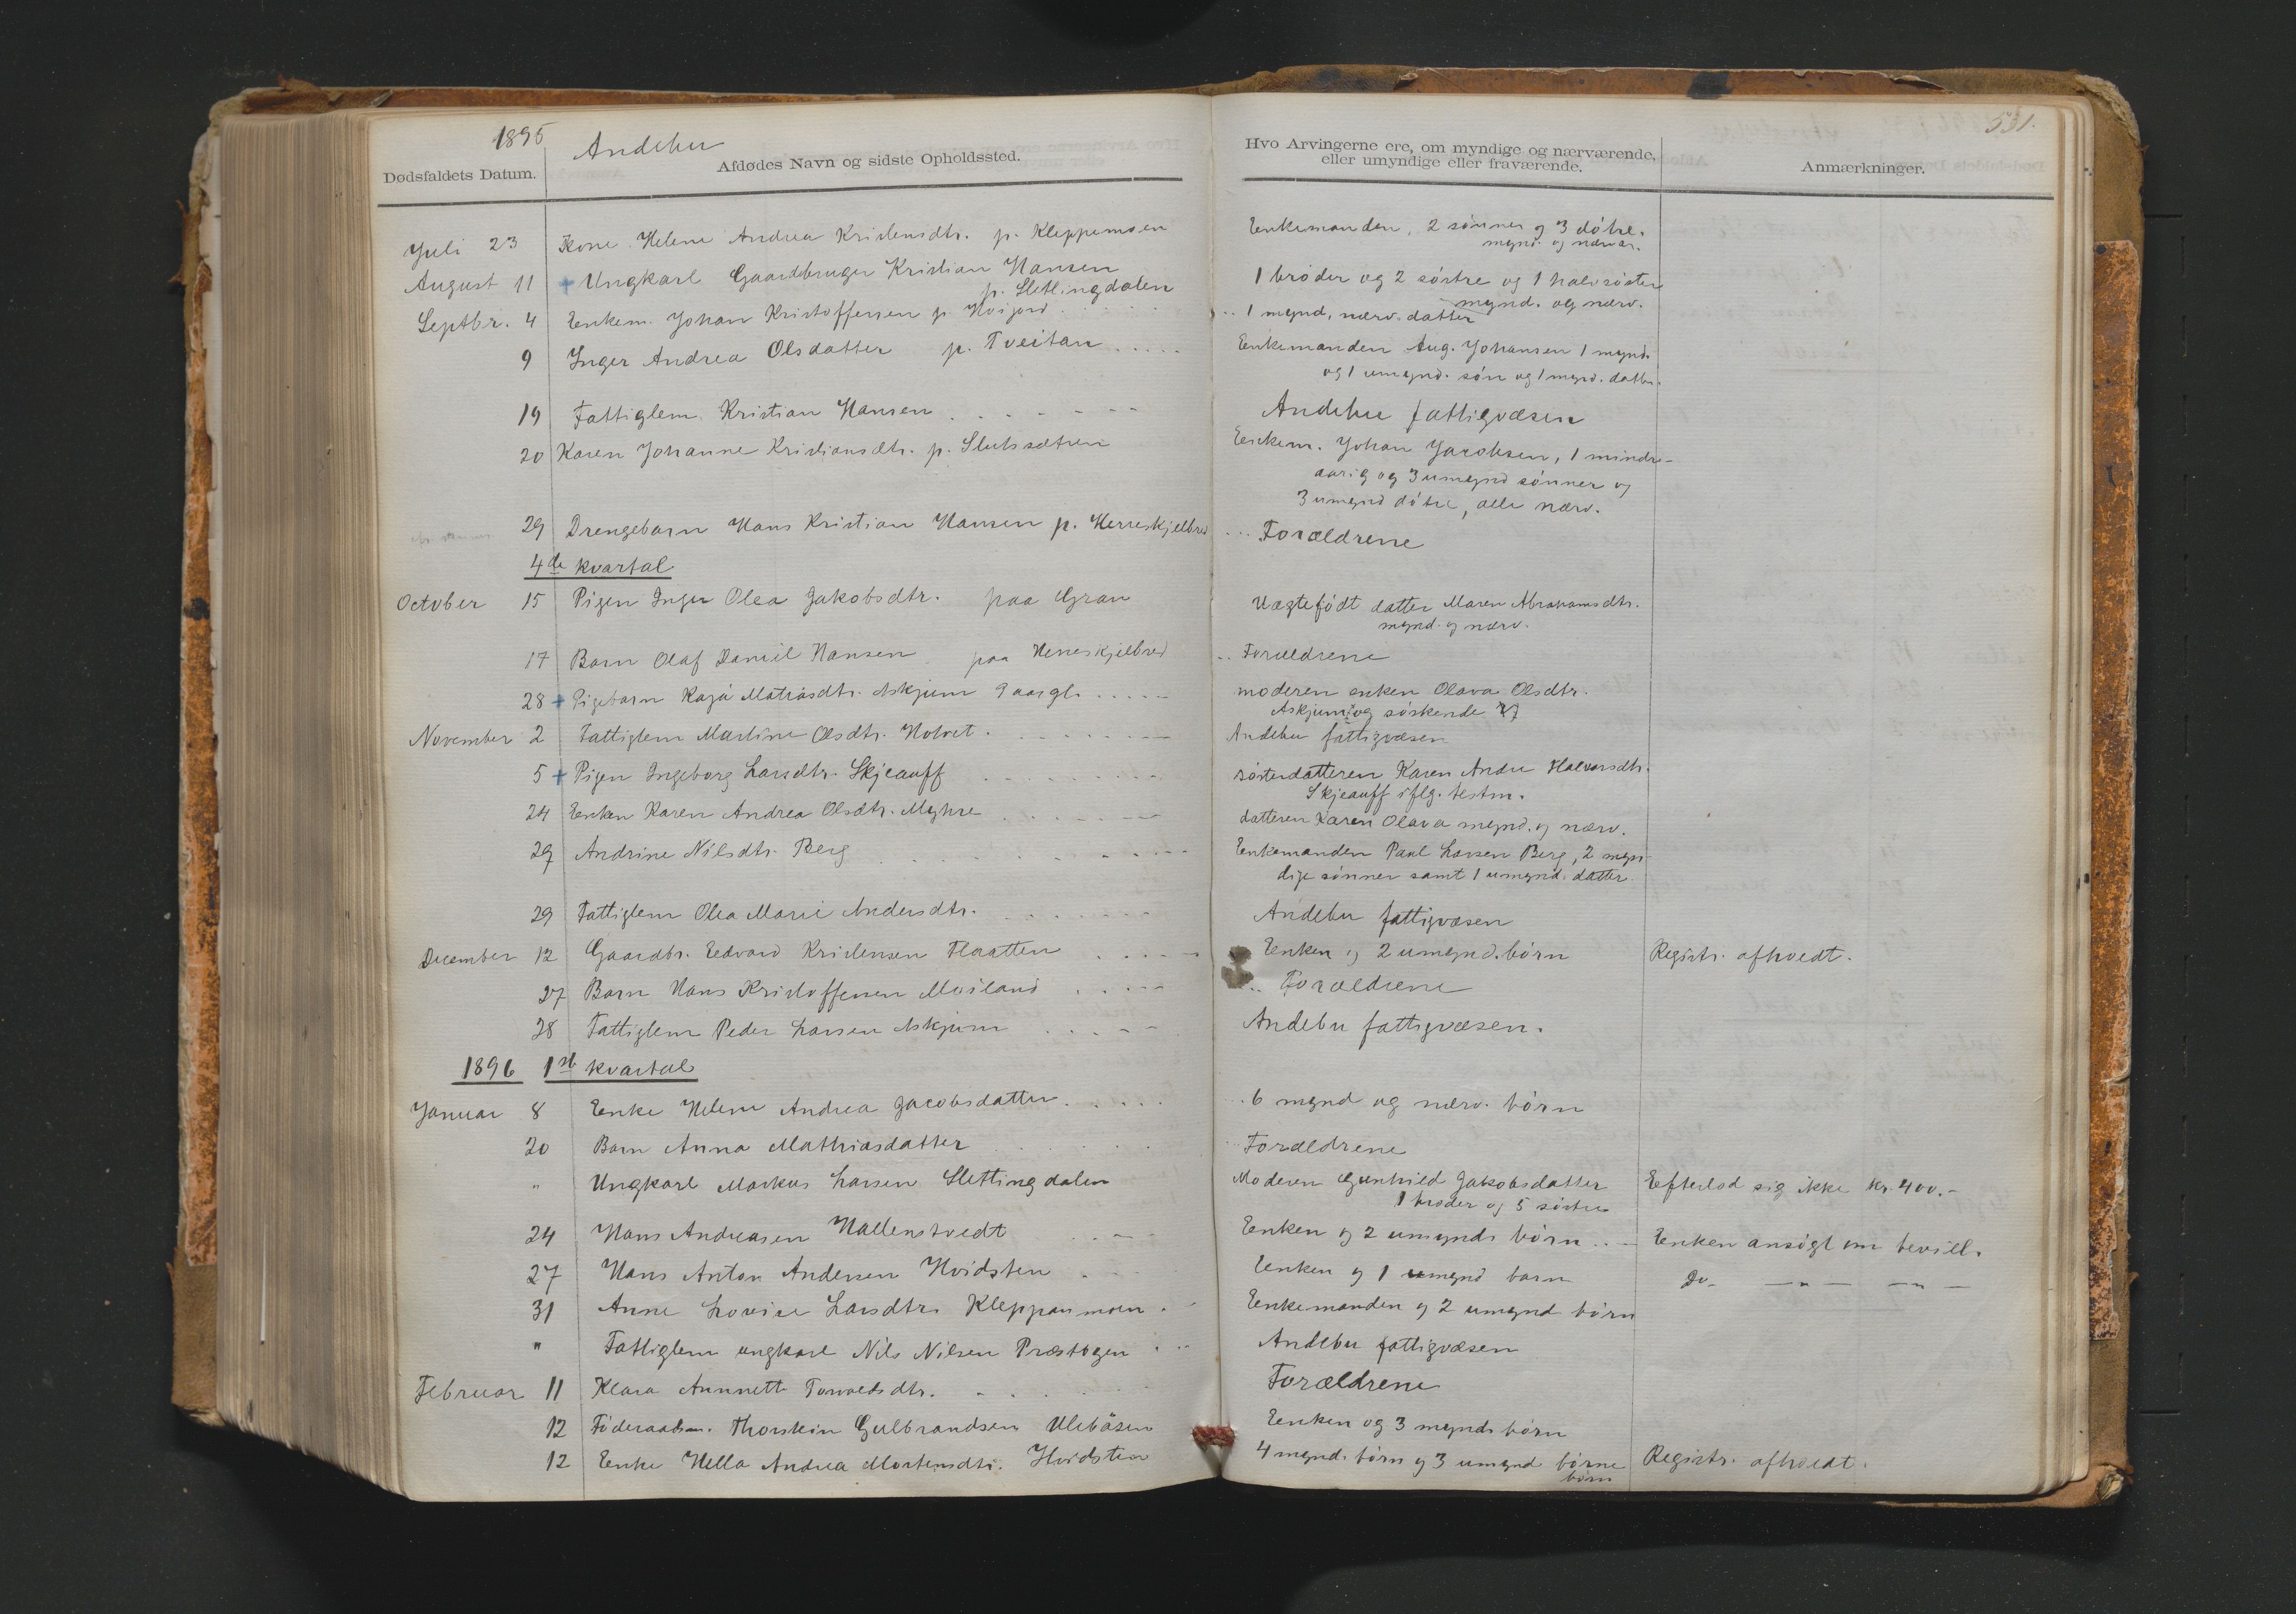 1895 Andebu
531.
Dødsfaldets Datum. Afdødes Navn og sidste Opholdssted. Hvo Arvingerne ere, om myndige og nærværende, eller umyndige eller fraværende. Anmærkninger.
Juli 23 Kone Helene Andrea Kristensdtr. p. Kleppemoen Enkemanden, 2 sønner og 3 døtre.
mynd. og nærvær.
August 11 + Ungkarl Gaardbruger Kristian Hansen 1 broder og 2 søstre og 1 halvsøster
p. Slettingdalen mynd. og nærv.
Septbr. 4 Enkem. Johan Kristoffersen p. Høijord 1 mynd. nærv. datter
9 Inger Andrea Olsdatter p. Tveitan Enkemanden Aug. Johansen 1 mynd.
og 1 umynd. søn og 1 mynd. datter.
19 Fattiglem Kristian Hansen Andebu fattigvæsen
20 Karen Johanne Kristiansdtr. p. Enkem. Johan Jacobsen, 1 mindre-
aarig og 3 umynd sønner og
3 umynd døtre, alle nærv.
29 Drengebarn Hans Kristian Hansen p. Herreskjelbred Forældrene
4de kvartal
October 15 Pigen Inger Olea Jakobsdtr. paa Gran Uægtefødt datter Maren Abrahamsdtr.
mynd. og nærv.
17 Barn Olaf Daniel Hansen paa Herreskjelbred Forældrene
28 + Pigebarn Kaja Matiasdtr. Askjum 9 aar gl. moderen enken Olava Olsdtr.
Askjum og søskende
November 2 Fattiglem Martine Olsdtr. Holvet. Andebu fattigvæsen
5 + Pigen Ingeborg Larsdtr. Skjeauff søsterdatteren Karen Andre Halvorsdtr.
Skjeauff iflg. testm.
24 Enken Karen Andrea Olsdtr. Myhre datteren Karen Olava mynd. og nærv.
29 Andrine Nilsdtr. Berg Enkemanden Paul Larsen Berg, 2 myn-
dige sønner samt 1 umynd. datter
29 Fattiglem Olea Marie Andersdtr. Andebu fattigvæsen
December 12 Gaardbr. Edvard Kristensen Flaatten Enken og 2 umynd. børn Registr. afholdt.
27 Barn Hans Kristoffersen Møiland Forældrene
28 Fattiglem Peder Larsen Askjum Andebu fattigvæsen.
1896 1st kvartal
Januar 8 Enke Helene Andrea Jacobsdatter 6 mynd og nærv. børn
20 Barn Anna Mathiasdatter Forældrene
" Ungkarl Markus Larsen Slettingdalen Moderen Gunhild Jakobsdatter Efterlod sig ikke kr. 400.-
1 broder og 5 søstre
24 Hans Andreasen Hallenstvedt Enken og 2 umynd. børn Enken ansøgt om bevill.
27 Hans Anton Andersen Hvidsten Enken og 1 umynd barn Do. — " — — " —
31 Anne Lovise Larsdtr. Kleppanmoen Enkemanden og 2 umynd børn
" Fattiglem ungkarl Nils Nilsen Præstbøen Andebu fattigvæsen
Februar 11 Klara Annett Torvaldsdtr. Forældrene
12 Føderaadsm. Thorstein Gulbrandsen Ulebåsen Enken og 3 mynd. børn
12 Enke Hella Andrea Mortensdtr. Hvidsten 4 mynd. børn og 3 umynd børne Registr. afholdt.
børn